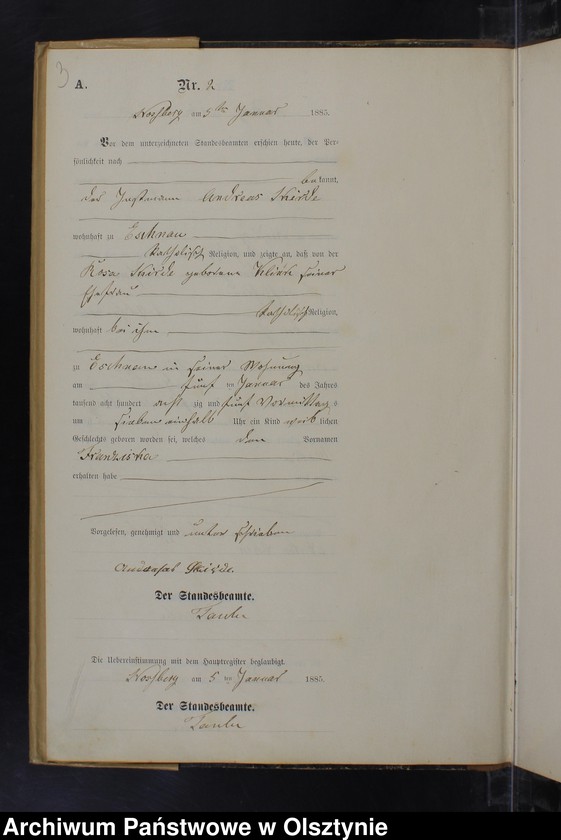 3
A. Nr. 2
am 5ten Januar 1885.
Vor dem unterzeichneten Standesbeamten erschien heute, der Per-
sönlichkeit nach
bekannt,
der Instmann Andreas
wohnhaft zu Eschnau
katholisch Religion, und zeigte an, daß von der
Rosa geborene seiner
Ehefrau
katholisch Religion,
wohnhaft bei ihm
zu Eschnau in seiner Wohnung
am fünf ten Januar des Jahres
tausend acht hundert acht zig und fünf Vormittag s
um sieben einhalb Uhr ein Kind weib lichen
Geschlechts geboren worden sei, welches den Vornamen
Franziska
erhalten habe
Vorgelesen, genehmigt und unterschrieben
Der Standesbeamte.
Die Uebereinstimmung mit dem Hauptregister beglaubigt.
am 5 ten Januar 1885.
Der Standesbeamte.
Archiwum Państwowe w Olsztynie